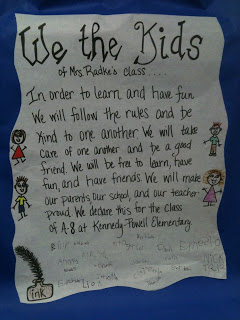 We the Kids
of Mrs Radke's Class....
In order to learn and have fun
We will follow the rules and be
kind to one another. We will take
care of one another and be a good
friend. We will be free to learn, have
fun, and have friends. We will make
our parents, our school, and our teacher
proud. We declare this for the Class
of A-8 at Kennedy-Powell Elementary
ink